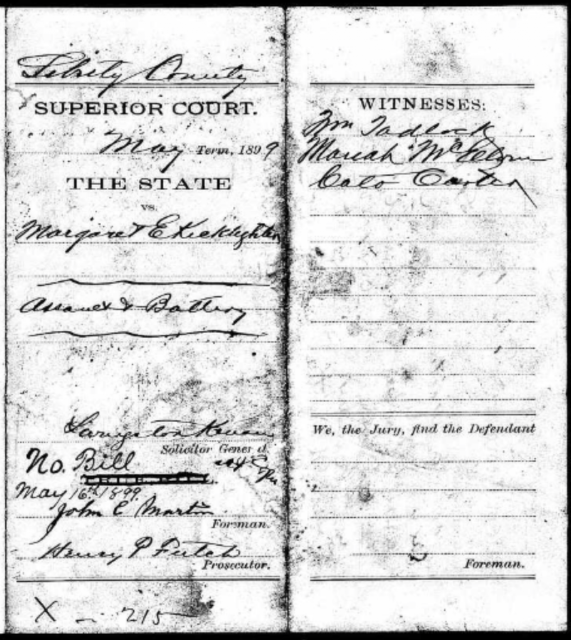 Liberty County
SUPERIOR COURT.
May Term, 1899
THE STATE
vs.
Margaret E Kicklighter
Assault & Battery
Livingston Kenan
Solicitor General
No. Bill
May 16th 1899.
John C Martin
Foreman.
Henry P Futch
Prosecutor.
X - 215
WITNESSES:
Wm Tadlock
Mariah
Cato Carter
We, the Jury, find the Defendant
Foreman.